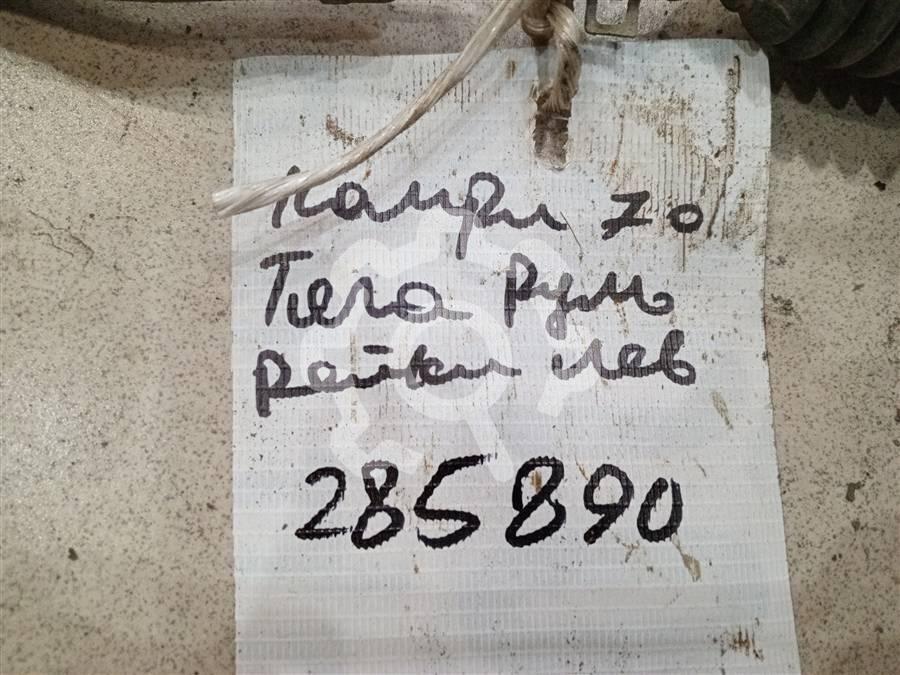 Камри 70
Тяга руль
рейки лев
285890